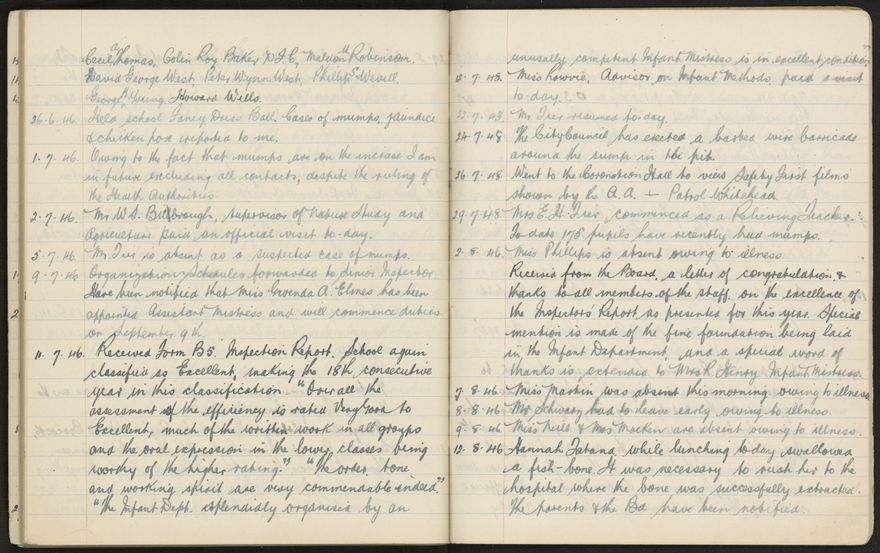 Cecil A Thomas, Colin Roy Baker D.F.C, Maldon H Robinson.
David George West, Peter Wynn West, Phillip E Wevell.
George A Young. Howard Wills.
26.6.46. Held school Fancy Dress Ball. Cases of mumps, jaundice
& chicken pox reported to me.
1.7.46. Owing to the fact that mumps are on the increase I am
in future excluding all contacts, despite the ruling of
the Health Authorities.
2.7.46. Mr W.S. Billbrough, Supervisor of Nature Study and
Agriculture paid an official visit to-day.
5.7.46. Mr. Iver is absent as a suspected case of mumps.
9.7.46 Organization & Schedules forwarded to Senior Inspector.
Have been notified that Miss Gwenda A. Elmes has been
appointed Assistant Mistress and will commence duties
on September 9th.
11.7.46. Received Form B5. Inspection Report. School again
classified as Excellent, making the 18th consecutive
year in this classification. "Over all the
assessment of the efficiency is rated Very Good to
Excellent, much of the written work in all groups
and the oral expression in the lower classes being
worthy of the higher rating." "The order, tone
and working spirit are very commendable indeed."
"The Infant Dept. splendidly organised by an
unusally competent Infant Mistress is in excellent condition"
Miss Lowrie, Advisor on Infant Methods paid a visit
to-day.
Mr Iver resumed to-day.
The City Council has erected a barbed wire barricade
around the sump in the pit.
Went to the Coronation Hall to view Safety First films
shown by the A.A. — Patrol Whitehead.
Mrs E.H. Iver, commenced as a Relieving Teacher.
To date 175 pupils have recently had mumps.
2.8.46. Miss Phillips is absent owing to illness.
Received from the Board, a letter of congratulation &
thanks to all members of the staff on the excellence of
the Inspector's Report as presented for this year. Special
mention is made of the fine foundation being laid
in the Infant Department, and a special word of
thanks is extended to Mrs R. Henry Infant Mistress.
7.8.46 Miss Markin was absent this morning owing to illness
8.8.46 Mr Schwarz had to leave early owing to illness.
9.8.46 Miss Neill & Mrs Mackin are absent owing to illness.
12.8.46 Hannah Tatana while lunching to-day swallowed
a fish-bone. It was necessary to rush her to the
hospital where the bone was successfully extracted.
The parents & the Bd have been notified.